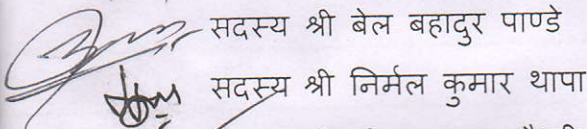 सदस्य श्री बेल बहादुर पाण्डे
सदस्य श्री निर्मल कुमार थापा